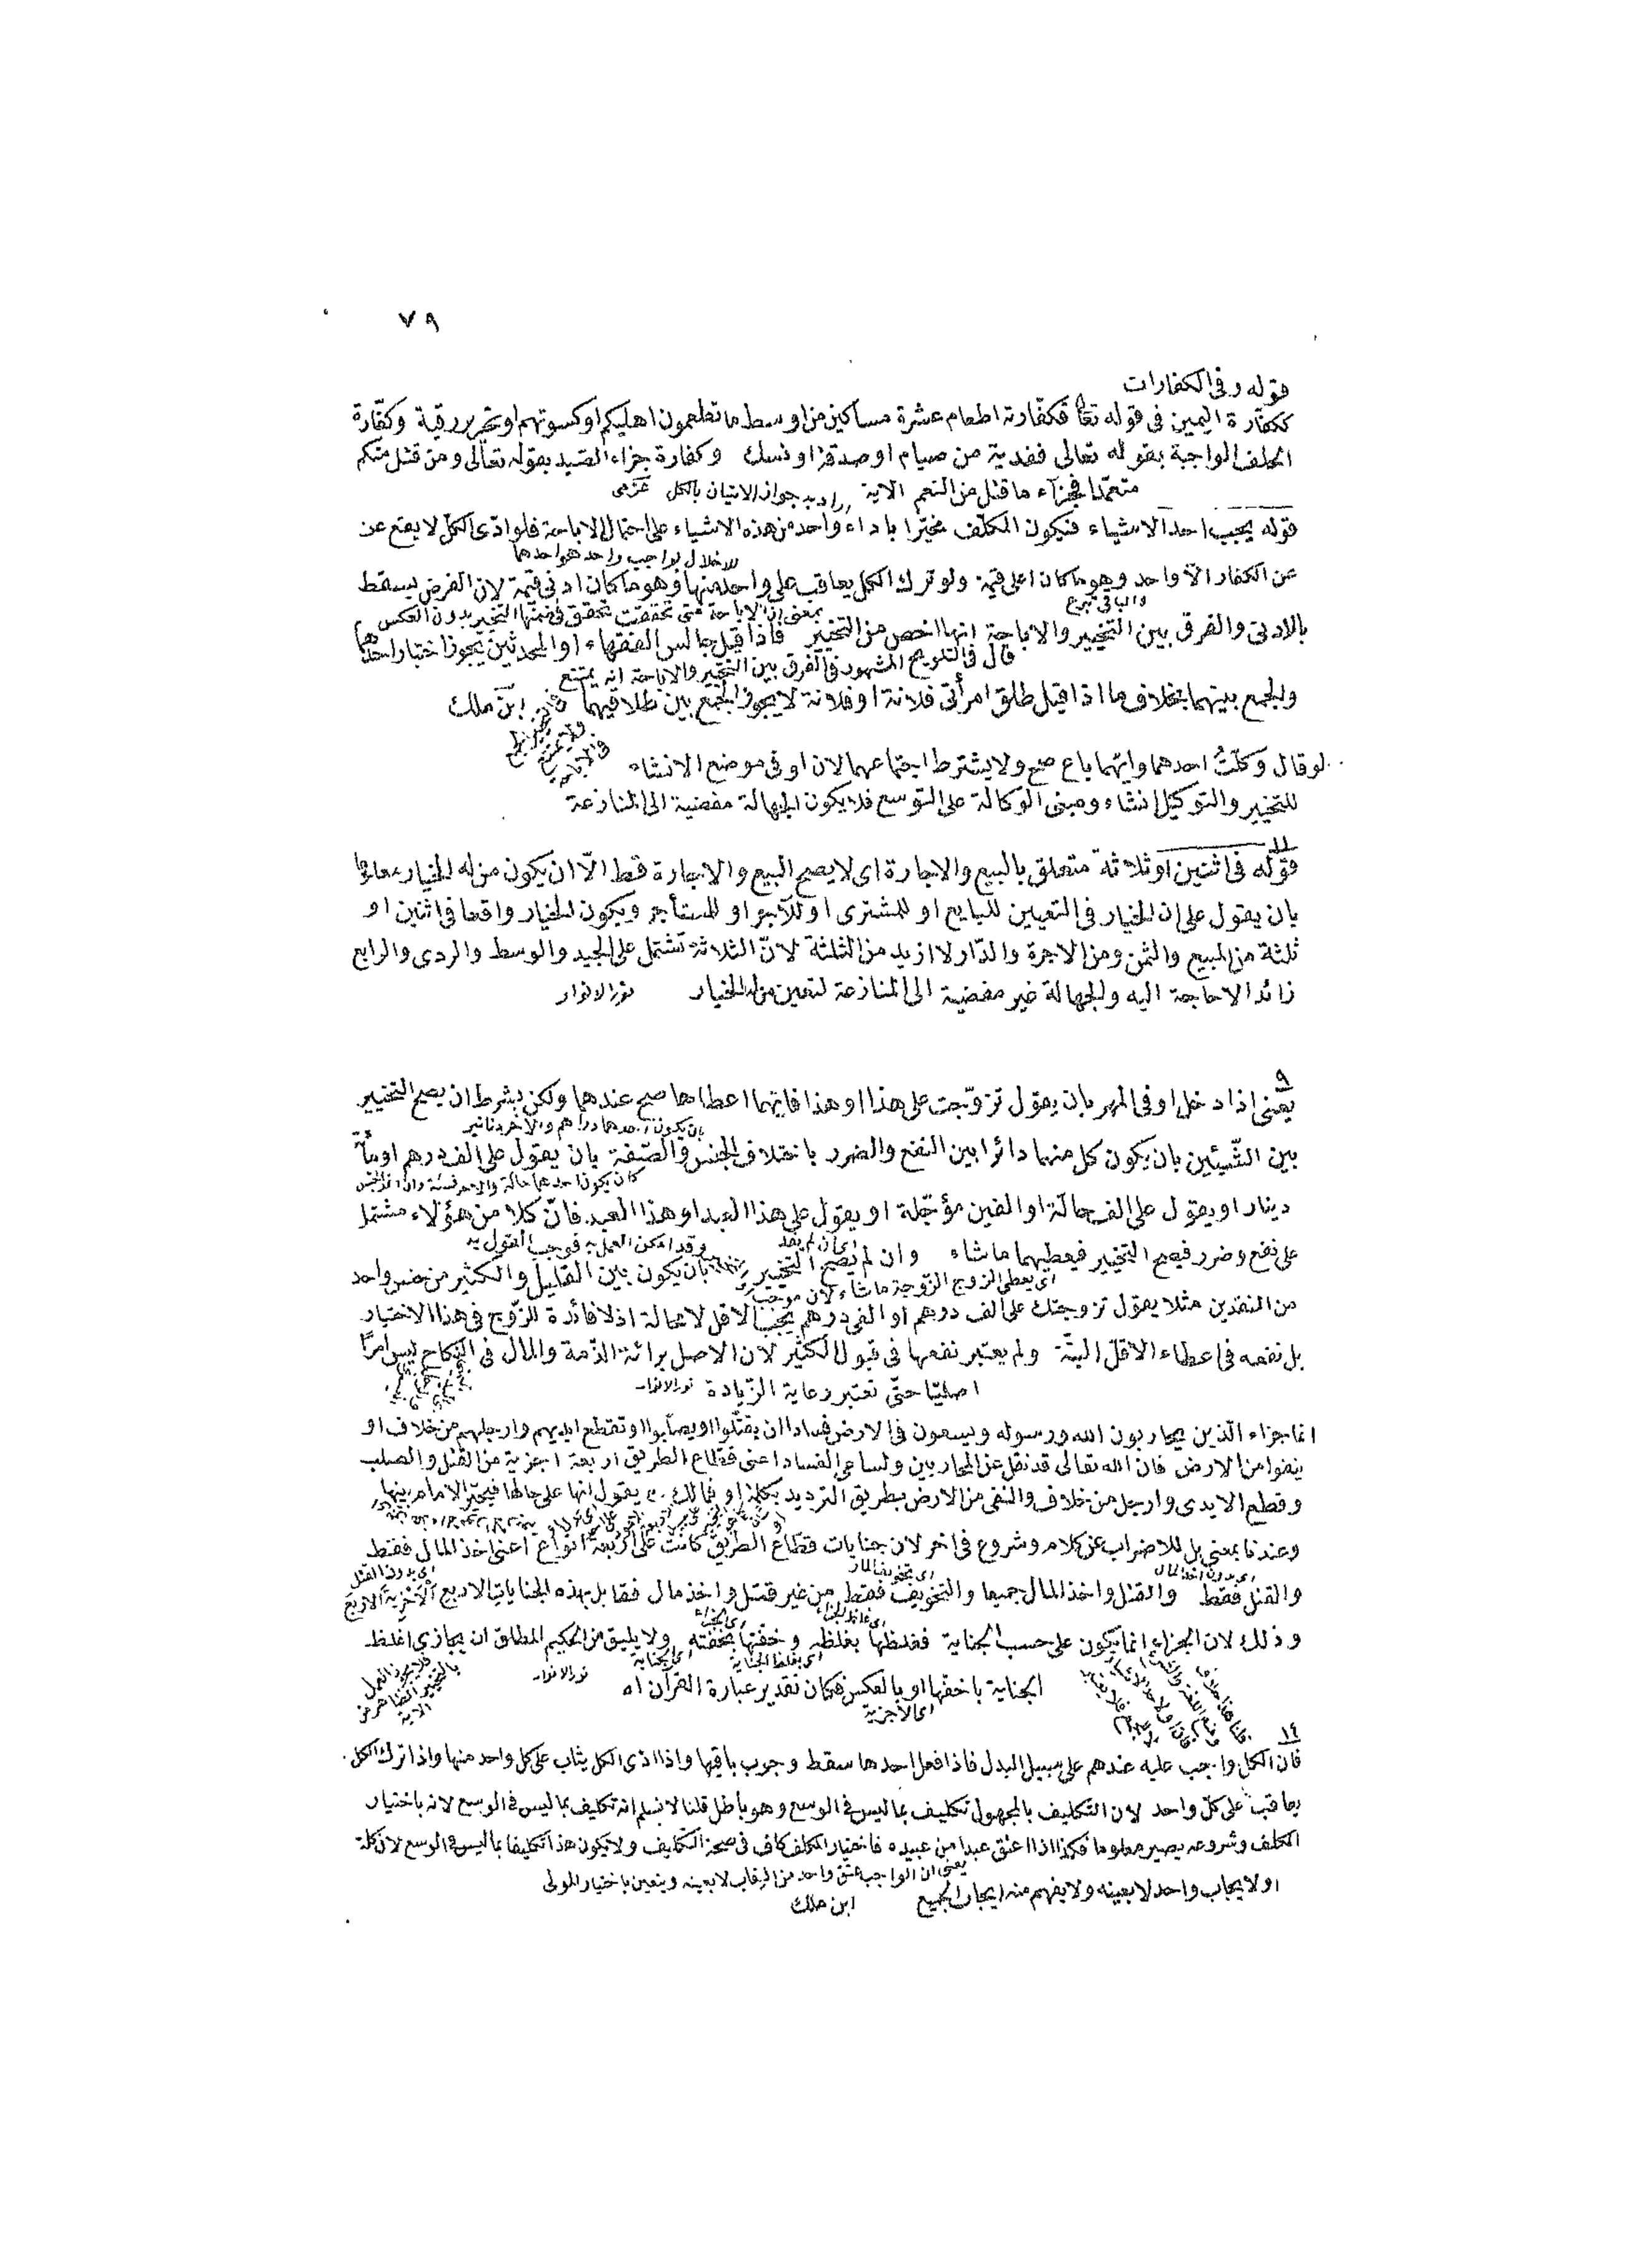 ٧٩
قوله وفى الكفارات
ككفارة اليمين فى قوله تعا فكفّارته اطعام عشرة مساكين من اوسط ما تطعمون اهليكم او كسوتهم او تحرير رقبة وكفّارة
الحلف الواجبة بقوله تعالى ففدية من صيام او صدقة او نسك وكفارة جزاء الصّيد بقوله تعالى ومن قتل منكم
متعمّدا فجزآء ما قتل من النعم الاية راد به جواز الاتيان بالكل عزمى
قوله يجب احد الاشياء فيكون المكلّف مخيّرا باداء واحد من هذه الاشياء على احتمال الاباحة فلو ادّى الكلّ لا يقع عن
للاخلال بواجب واحد هو احدهما
عن الكفار الّا واحد وهو ما كان اعلى قيمة ولو ترك الكل يعاقب على واحد منها وهو ما كان ادنى قيمة لان الفرض يسقط
والباقى تبرع
بمعنى ان الاباحة متى تحققت تحقق فى ضمنها التخيير بدون العكس
بالادنى والفرق بين التخيير والاباحة انها اخص من التخيير فاذا قيل جالس الفقهاء او المحدثين يجوز اختيار احدهما
قال فى التلويح المشهور فى الفرق بين التخيير والاباحة انه يمتنع
والجمع بينهما بخلاف ما اذا قيل طلق امرأتى فلانة او فلانة لا يجوز الجمع بين طلاقيهما ابن ملك
لو قال وكلّتُ احدهما وايّهما باع صح ولا يشترط اجتماعهما لان او فى موضع الانشاء
للتخيير والتوكيل انشاء ومبنى الوكالة على التوسع فلا يكون الجهالة مفضية الى المنازعة
قوله فى اثنين او ثلاثة متعلق بالبيع والاجارة اى لا يصح البيع والاجارة قط الّا ان يكون من له الخيار معلوما
بان يقول على ان الخيار فى التعيين للبايع او للمشترى او للآجر او للمستأجر ويكون الخيار واقعا فى اثنين او
ثلثة من المبيع والثمن ومن الاجرة والدّار لا ازيد من الثلثة لانّ الثلاثة تشتمل على الجيد والوسط والردى والرابع
زائد لا حاجة اليه والجهالة غير مفضية الى المنازعة لتعين من له الخيار نور الانوار
٩
يعنى اذا دخل او فى المهر بان يقول تزوّجت على هذا او هذا فايّهما اعطاها صح عندهما ولكن بشرط ان يصح التخيير
بان يكون احدهما دراهم والآخر دنانير
بين الشّيئين بان يكون كل منهما دائرا بين النفع والضرر باختلاف الجنس والصّفة بان يقول على الف درهم او مأة
دينار او يقول على الف حالّة او الفين مؤجّلة او يقول على هذا العبد او هذا العبد فانّ كلا من هؤلاء مشتمل
على نفع وضرر فيصح التخيير فيعطيهما ما شاء وان لم يصح التخيير بان يكون بين القليل والكثير من جنس واحد
اى ان لم يفد
وقد امكن العمل به فوجب القول به
اى يعطى الزوج الزّوجة ما شاء لان موجب
من النقدين مثلا يقول تزوجتك على الف درهم او الفى درهم يجب الاقل لا محالة اذ لا فائدة للزّوج فى هذا الاختيار
بل نفعه فى اعطاء الاقلّ البتّة ولم يعتبر نفعها فى قبول الكثير لان الاصل برائة الذّمة والمال فى النكاح ليس امرًا
اصليّا حتّى تعتبر رعاية الزّيادة نور الانوار
انما جزاء الّذين يحاربون الله ورسوله ويسعون فى الارض فسادا ان يقتّلوا او يصلّبوا او تقطع ايديهم وارجلهم من خلاف او
ينفوا من الارض فان الله تعالى قد نقل عن المحاربين ولساعى الفساد اعنى قطّاع الطريق اربعة اجزية من القتل والصلب
وقطع الايدى وارجل من خلاف والنفى من الارض بطريق الترديد بكلمة او فمالك يقول انها على حالها فيخيّر الامام بينها
وعندنا بمعنى بل للاضراب عن كلام وشروع فى آخر لان جنايات قطّاع الطريق كانت على اربعة انواع اعنى اخذ المال فقط
اى بدون اخذ المال
اى بدون القتل
والقتل فقط والقتل واخذ المال جميعا والتخويف فقط من غير قتل واخذ مال فقابل بهذه الجنايات الاربع الاجزية الاربع
وذلك لان الجزاء انما يكون على حسب الجناية فغلظها بغلظه وخفتها بخفته ولا يليق من الحكيم المطلق ان يجازى اغلظ
اى بغلظ الجناية
الجناية باخفها او بالعكس فكان تقدير عبارة القرآن اه نور الانوار
اى الاجزية
فلا يجوز العمل
بالتخيير الظاهر من
الاية
١٤
فان الكل واجب عليه عندهم على سبيل البدل فاذا فعل احدها سقط وجوب باقيها واذا ادّى الكل يثاب على كل واحد منها واذا ترك الكل
يعاقب على كلّ واحد لان التكليف بالمجهول تكليف بما ليس فى الوسع وهو باطل قلنا لا نسلم انه تكليف بما ليس فى الوسع لانه باختيار
المكلف وشروعه يصير معلوما فكذا اذا اعتق عبدا من عبيده فاختيار المكلف كاف فى صحة التكليف ولا يكون هذا تكليفا بما ليس فى الوسع لان كلمة
يعنى ان الواجب عتق واحد من الرقاب لا بعينه ويتعين باختيار المولى
او لايجاب واحد لا بعينه ولا يفهم منه ايجاب الجميع ابن ملك